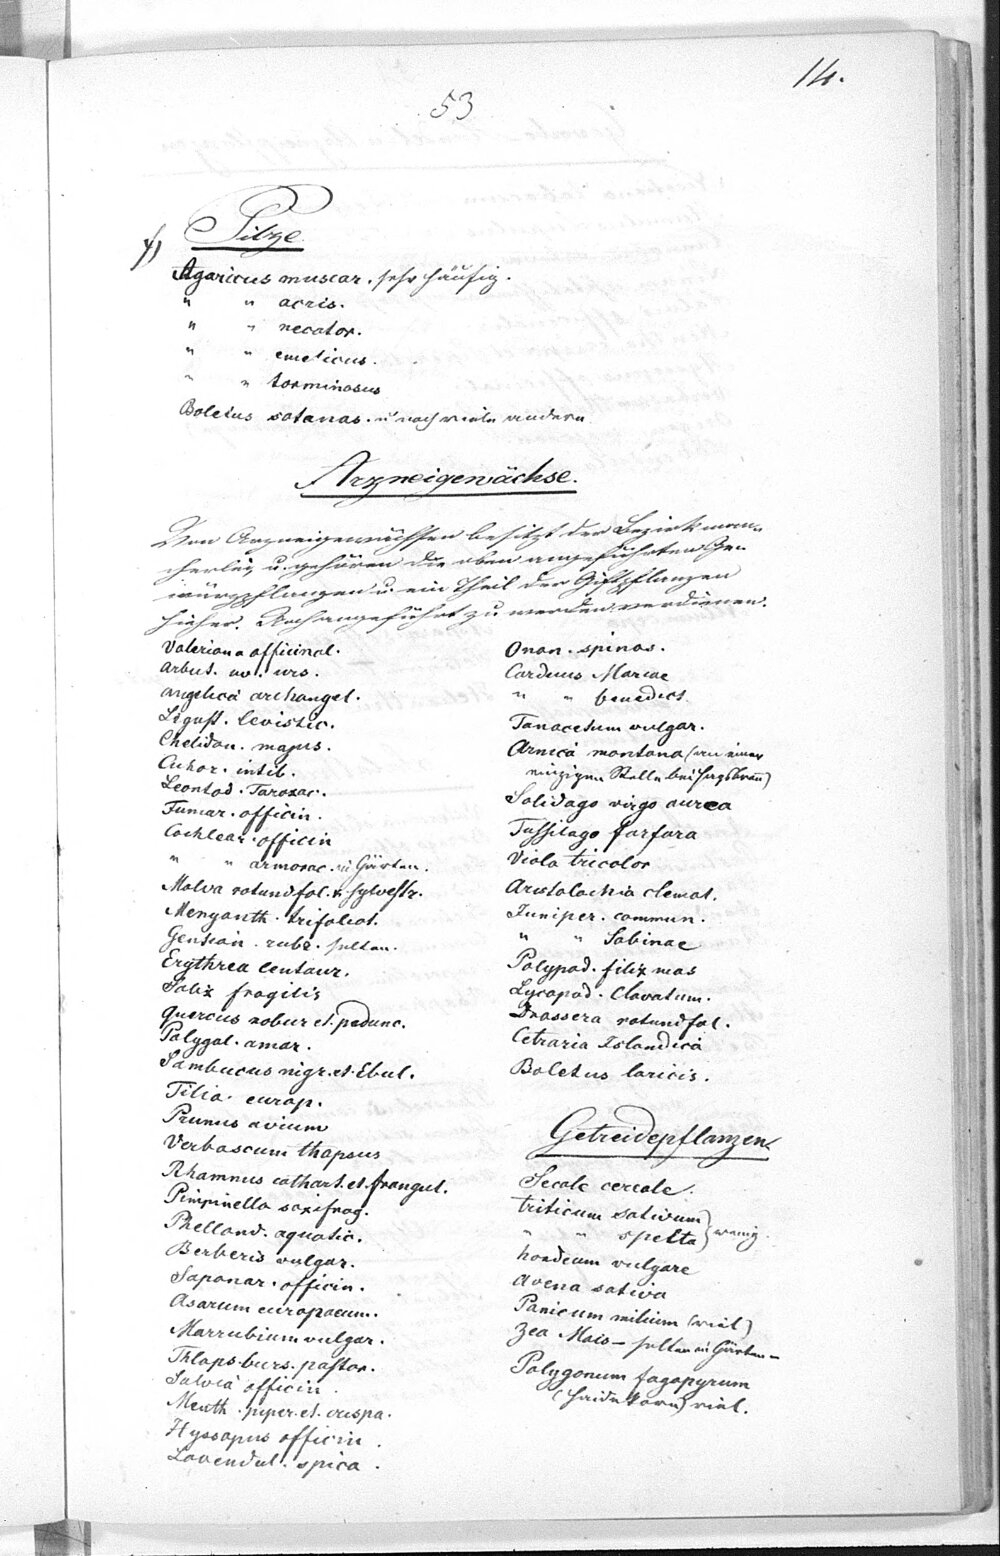 14.
53
Pilze
Agaricus muscar. sehr häufig.
" " acris.
" " necator.
" " emeticus.
" " torminosus
Boletus satanas. u noch viele andern
Arzneigewächse.
Von Arzneigewächsen besitzt der Bezirk man-
cherley u. gehören die oben angeführten Ge-
würzpflanzen u. ein Theil der Giftpflanzen
hieher. Noch angeführt zu werden verdienen:
Valeriana officinal.
Arbut. uv. urs.
Angelica archangel.
Ligust. levistic.
Chelidon. majus.
Cichor. intib.
Leontod. Taraxac.
Fumar. officin.
Cochlear. officin
" " armorac. in Gärten.
Malva rotundfol. & sylvestr.
Menyanth. trifoliat.
Gentian. rubr. selten.
Erythrea Centaur.
Salix fragilis
Quercus robur et pedunc.
Polygal. amar.
Sambucus nigr. et Ebul.
Tilia europ.
Prunus avium
Verbascum thapsus
Rhamnus cathart. et frangul.
Pimpinella saxifrag.
Phelland. aquatic.
Berberis vulgar.
Saponar. officin.
Asarum europaeum.
Marrubium vulgar.
Thlaps. burs. pastor.
Salvia officin.
Menth. piper. et crispa.
Hyssopus officin.
Lavendul. spica.
Onon. spinos.
Carduus Mariae
" " benedict.
Tanacetum vulgar.
Arnica montana (an einer
einzigen Stelle bei
Solidago virgo aurea
Tussilago farfara
Viola tricolor
Aristolochia clemat.
Juniper. commun.
" " Sabinae
Polypod. filix mas
Lycopod. Clavatum.
Drossera rotundfol.
Cetraria Islandica
Boletus laricis.
Getreidepflanzen
Secale cereale.
triticum sativum
" " spelta } wenig.
hordeum vulgare
Avena sativa
Panicum milium (viel)
Zea Mais – selten in Gärten –
Polygonum fagopyrum
(Haidekorn) viel.